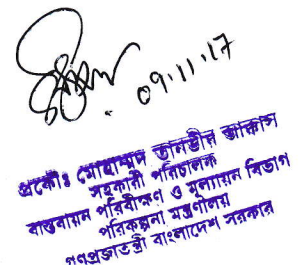 ০৭.১১.১৭
প্রকৌঃ মোহাম্মদ তানভীর আকাস
সহকারী পরিচালক
বাস্তবায়ন পরিবীক্ষণ ও মূল্যায়ন বিভাগ
পরিকল্পনা মন্ত্রণালয়
গণপ্রজাতন্ত্রী বাংলাদেশ সরকার